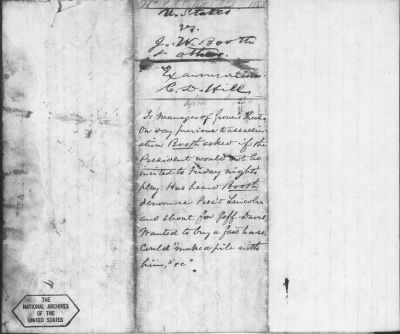 U. States
vs.
J. W. Booth
& others
Examination
C. D. Hill
Is Manager of
On day previous to assassin-
ation Booth asked if the
President would not be
invited to Friday nights
play. Has heard Booth
denounce Pres't Lincoln
and shout for Jeff Davis
Wanted to buy a fast horse
Could "make a pile with
him," &c"
THE
NATIONAL ARCHIVES
OF THE
UNITED STATES